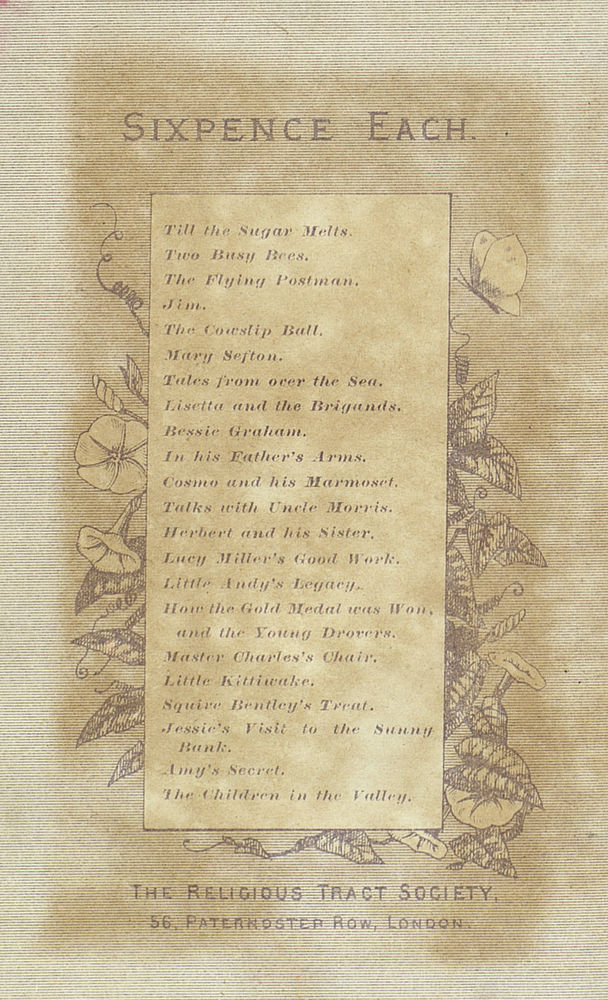 SIXPENCE EACH.
Till the Sugar Melts.
Two Busy Bees.
The Flying Postman.
Jim.
The Cowslip Ball.
Mary Sefton.
Tales from over the Sea.
Lisetta and the Brigands.
Bessie Graham.
In his Father's Arms.
Cosmo and his Marmoset.
Talks with Uncle Morris.
Herbert and his Sister.
Lucy Miller's Good Work.
Little Andy's Legacy.
How the Gold Medal was Won,
and the Young Drovers.
Master Charles's Chair.
Little Kittiwake.
Squire Bentley's Treat.
Jessie's Visit to the Sunny
Bank.
Amy's Secret.
The Children in the Valley.
THE RELIGIOUS TRACT SOCIETY,
56, PATERNOSTER ROW, LONDON.